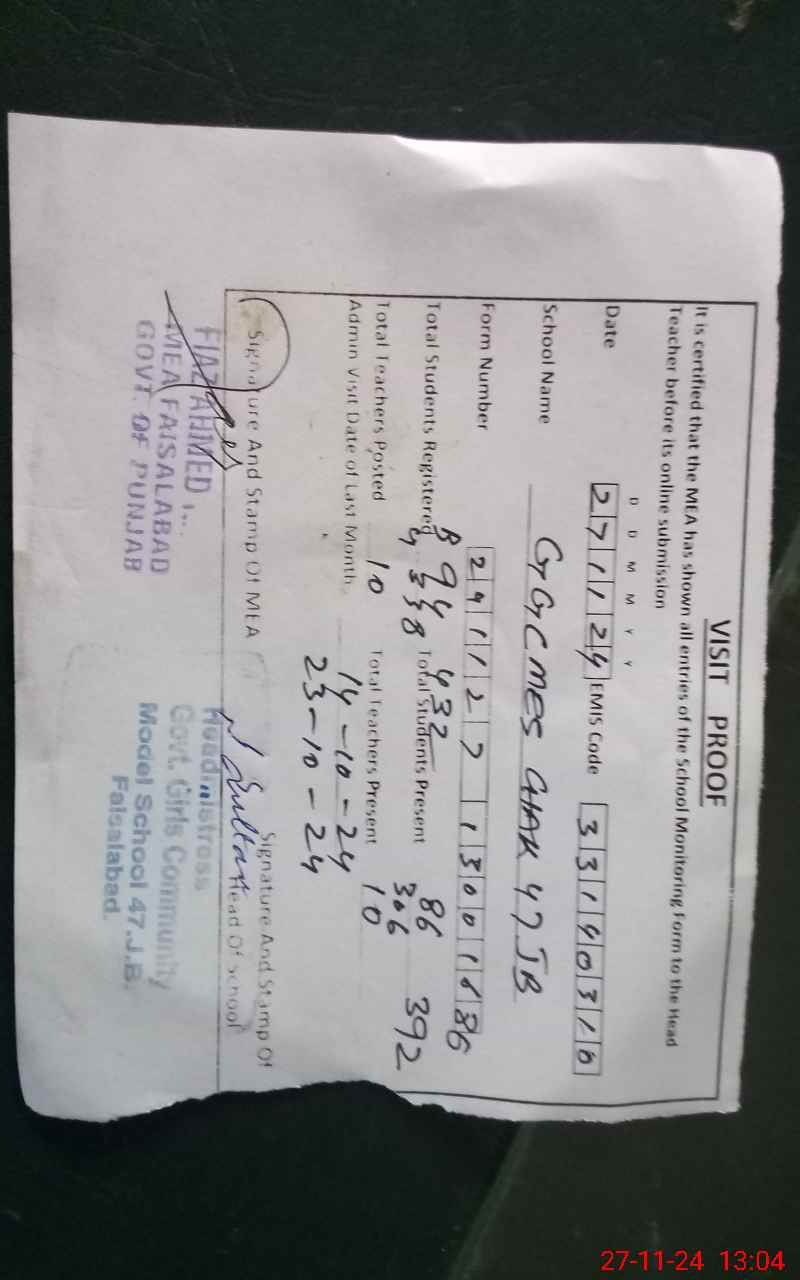 VISIT PROOF
It is certified that the MEA has shown all entries of the School Monitoring Form to the Head
Teacher before its online submission
D D M M Y Y
Date 271124 EMIS Code 33140310
School Name GGCMES CHAK 47 JB
Form Number 241127 1300186
86
Total Students Registered B 94 432 Total Students Present 86 392
4 338 306
Total Teachers Posted 10 Total Teachers Present 10
Admin Visit Date of Last Month 14-10-24
23-10-24
Signature And Stamp Of MEA
Signature And Stamp Of
Head Of School
FIAZ AHMED
MEA FAISALABAD
GOVT. OF PUNJAB
Headmistress
Govt. Girls Community
Model School 47.J.B.
Faisalabad.
27-11-24 13:04